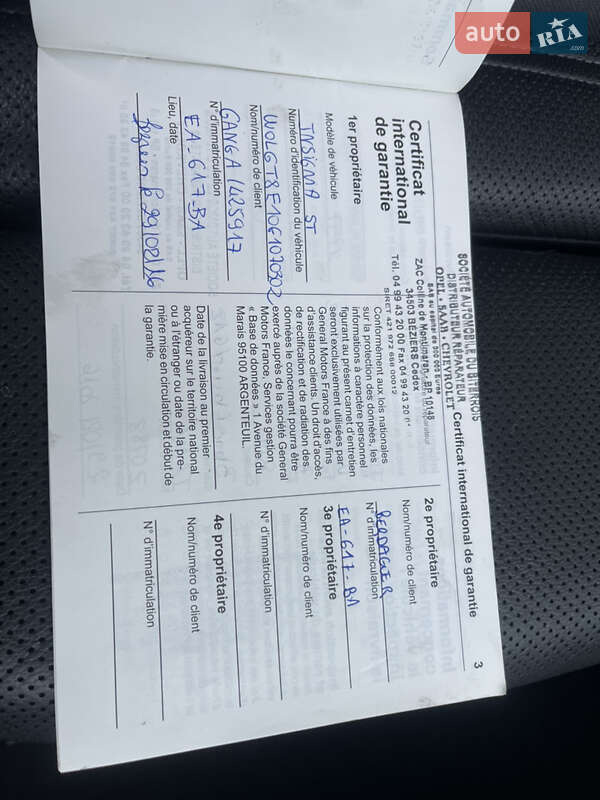 auto
RIA
.com
Certificat international de garantie
3
SOCIÉTÉ AUTOMOBILE DU BITERROIS
DISTRIBUTEUR RÉPARATEUR
OPEL - SAAB - CHEVROLET
ZAC Colline de Montimaran - BP 10145
34503 BÉZIERS Cedex
Tél. 04 99 43 20 00 Fax 04 99 43 20
Certificat
international
de garantie
1er propriétaire
Modèle de véhicule
INSIGNIA ST
Numéro d'identification du véhicule
W0LGT8E1061070302
Nom/numéro de client
GANGA /1425917
N° d'immatriculation
EA-617-BA
Lieu, date
Béziers le 29/02/16
Conformément aux lois nationales
sur la protection des données, les
informations à caractère personnel
figurant au présent carnet d'entretien
seront exclusivement utilisées par
General Motors France à des fins
d'assistance clients. Un droit d'accès,
de rectification et de radiation des
données le concernant pourra être
exercé auprès de la société General
Motors France, Services gestion
« Base de données » 1 Avenue du
Marais 95100 ARGENTEUIL.
Date de la livraison au premier
acquéreur sur le territoire national
ou à l'étranger ou date de la pre-
mière mise en circulation et début de
la garantie.
2e propriétaire
Nom/numéro de client
BERDAGUER
N° d'immatriculation
EA-617-BA
3e propriétaire
Nom/numéro de client
N° d'immatriculation
4e propriétaire
Nom/numéro de client
N° d'immatriculation